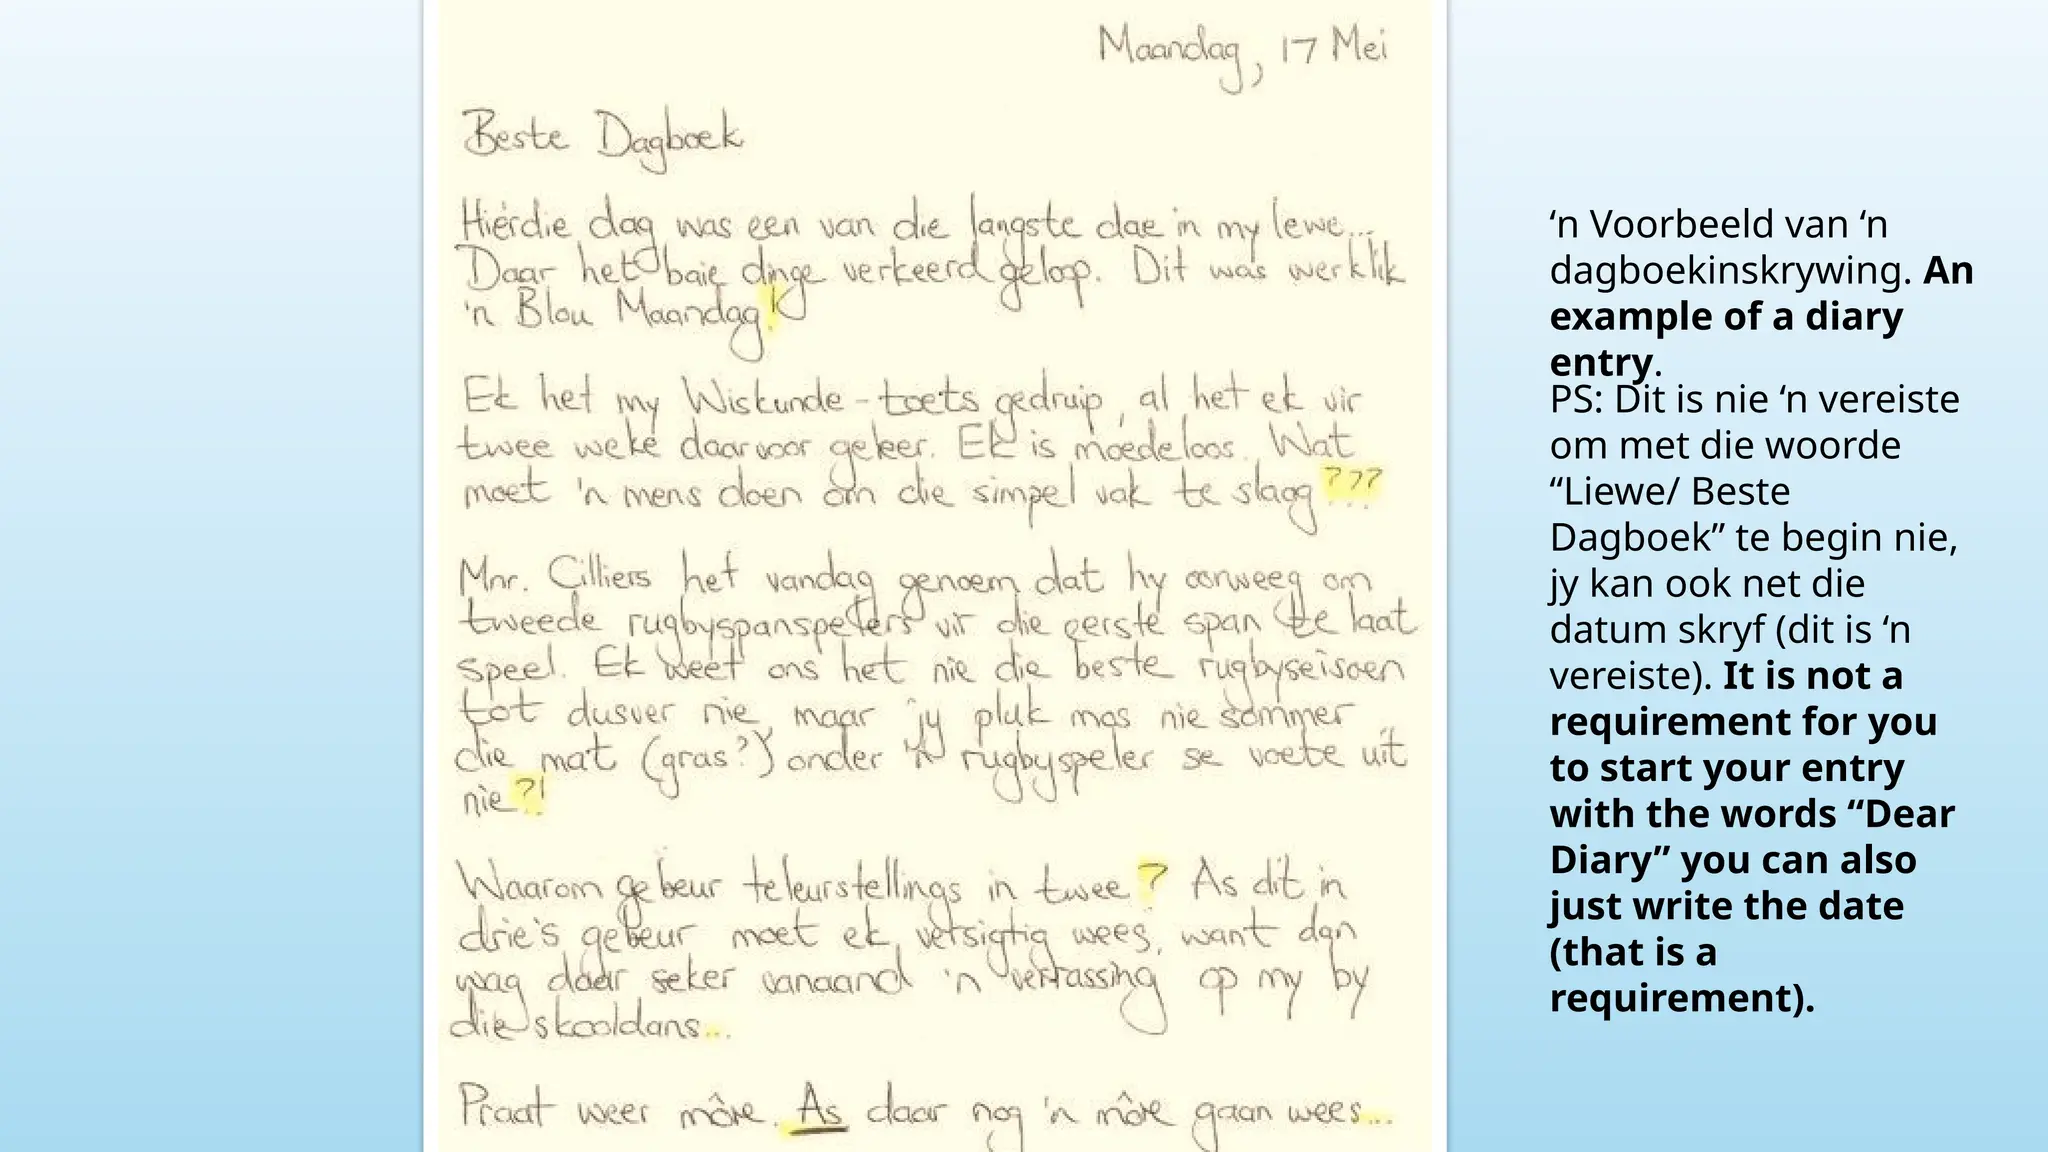 Maandag, 17 Mei
Beste Dagboek
Hiérdie dag was een van die langste dae in my lewe...
Daar het baie dinge verkeerd geloop. Dit was werklik
'n Blou Maandag!
Ek het my Wiskunde-toets gedruip, al het ek vir
twee weke daarvoor geleer. Ek is moedeloos. Wat
moet 'n mens doen om die simpel vak te slaag???
Mnr. Cilliers het vandag genoem dat hy oorweeg om
tweede rugbyspanspelers vir die eerste span te laat
speel. Ek weet ons het nie die beste rugbyseisoen
tot dusver nie, maar jy pluk mos nie sommer
die mat (gras?) onder 'n rugbyspeler se voete uit
nie?!
Waarom gebeur teleurstellings in twee? As dit in
drie's gebeur moet ek versigtig wees, want dan
wag daar seker vanaand 'n verrassing op my by
die skooldans...
Praat weer môre. As daar nog 'n môre gaan wees...
‘n Voorbeeld van ‘n
dagboekinskrywing. An
example of a diary
entry.
PS: Dit is nie ‘n vereiste
om met die woorde
“Liewe/ Beste
Dagboek” te begin nie,
jy kan ook net die
datum skryf (dit is ‘n
vereiste). It is not a
requirement for you
to start your entry
with the words “Dear
Diary” you can also
just write the date
(that is a
requirement).